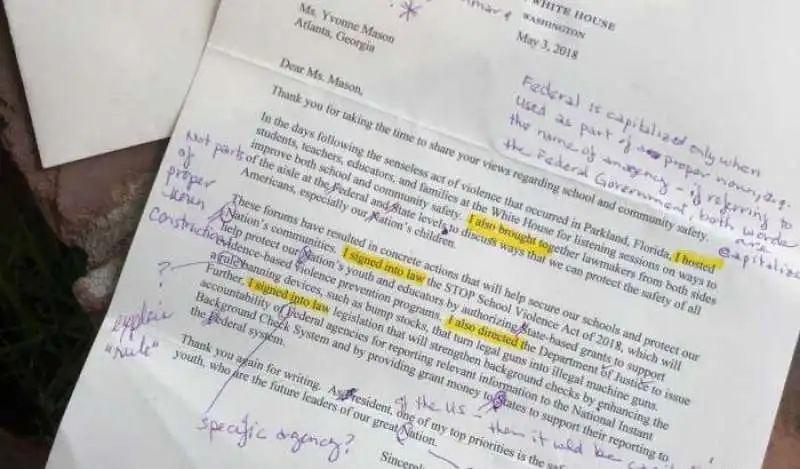 WHITE HOUSE
WASHINGTON
May 3, 2018
Ms. Yvonne Mason
Atlanta, Georgia
Dear Ms. Mason,
Thank you for taking the time to share your views regarding school and community safety.
In the days following the senseless act of violence that occurred in Parkland, Florida, I hosted
students, teachers, educators, and families at the White House for listening sessions on ways to
improve both school and community safety. I also brought together lawmakers from both sides
of the aisle at the Federal and State levels to discuss ways that we can protect the safety of all
Americans, especially our Nation's children.
These forums have resulted in concrete actions that will help secure our schools and protect our
Nation's communities. I signed into law the STOP School Violence Act of 2018, which will
help protect our Nation's youth and educators by authorizing State-based grants to support
evidence-based violence prevention programs. I also directed the Department of Justice to issue
a rule banning devices, such as bump stocks, that turn legal guns into illegal machine guns.
Further, I signed into law legislation that will strengthen background checks by enhancing the
accountability of Federal agencies for reporting relevant information to the National Instant
Background Check System and by providing grant money to States to support their reporting to
the Federal system.
Thank you again for writing. As President, one of my top priorities is the
youth, who are the future leaders of our great Nation.
Sincerely
Federal is capitalized only when
used as part of a proper noun, e.g.
the name of an agency - if referring to
the Federal Government, both words
are
capitalized
Not part
of
proper
noun
construction
?
explain
"rule"
specific agency?
of the US - then it wld be